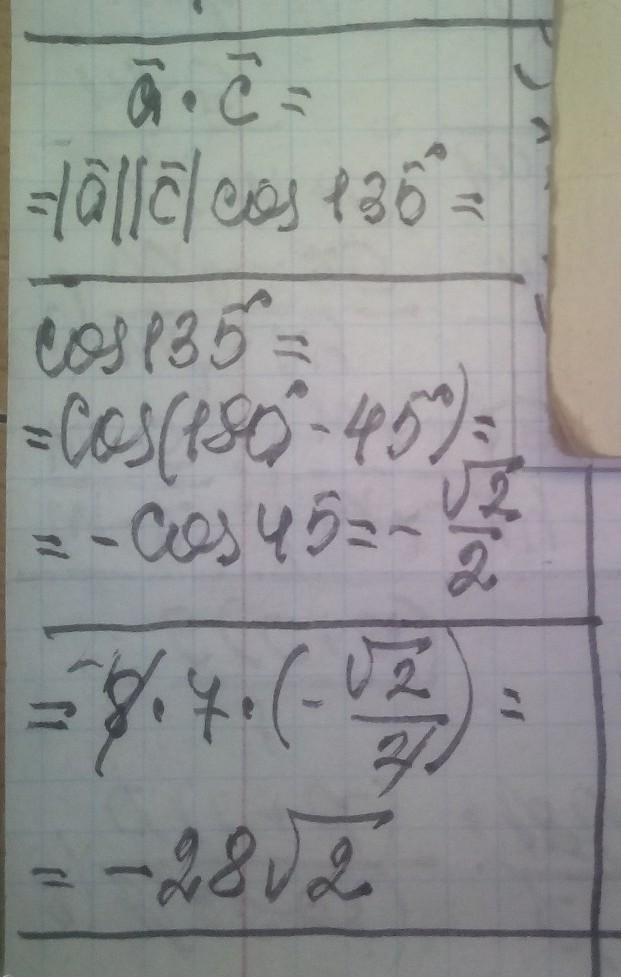 a̅ · c̅ =
= |a̅| |c̅| cos 135° =
cos 135° =
= cos(180° - 45°) =
= - cos 45 = - √2/2
= 8 · 7 · (- √2/2) =
= - 28√2